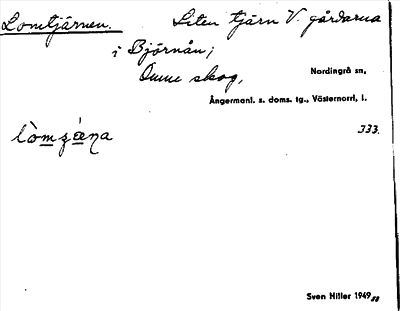 Lomtjärnen. Liten tjärn V. gårdarna
i Björnån;
Omne skog,
Nordingrå sn,
Ångermanl. s. doms. tg., Västernorrl. l.
333.
Sven Hiller 1949